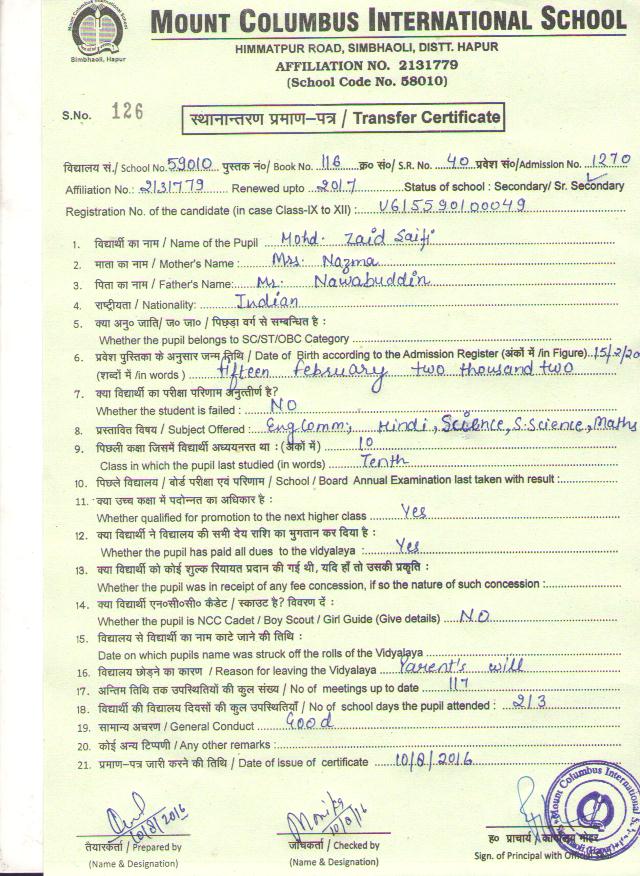 Mount Columbus International School
Simbhaoli, Hapur
MOUNT COLUMBUS INTERNATIONAL SCHOOL
HIMMATPUR ROAD, SIMBHAOLI, DISTT. HAPUR
AFFILIATION NO. 2131779
(School Code No. 58010)
S.No. 126
स्थानान्तरण प्रमाण–पत्र / Transfer Certificate
विद्यालय सं./ School No. 59010 पुस्तक नं०/ Book No. 116 क्र० सं०/ S.R. No. 40 प्रवेश सं०/Admission No. 1270
Affiliation No.: 2131779 Renewed upto 2017 Status of school : Secondary/ Sr. Secondary
Registration No. of the candidate (in case Class-IX to XII) : V615590100049
1. विद्यार्थी का नाम / Name of the Pupil Mohd. Zaid Saifi
2. माता का नाम / Mother's Name : Mrs. Nazma
3. पिता का नाम / Father's Name: Mr. Nawabuddin
4. राष्ट्रीयता / Nationality: Indian
5. क्या अनु० जाति/ ज० जा० / पिछड़ा वर्ग से सम्बन्धित है :
Whether the pupil belongs to SC/ST/OBC Category
6. प्रवेश पुस्तिका के अनुसार जन्म तिथि / Date of Birth according to the Admission Register (अंकों में /in Figure) 15/2/20
(शब्दों में /in words ) fifteen february two thousand two
7. क्या विद्यार्थी का परीक्षा परिणाम अनुत्तीर्ण है?
Whether the student is failed : NO
8. प्रस्तावित विषय / Subject Offered : Eng Comm, Hindi, Science, S.Science, Maths
9. पिछली कक्षा जिसमें विद्यार्थी अध्ययनरत था : (अंकों में ) 10
Class in which the pupil last studied (in words) Tenth
10. पिछले विद्यालय / बोर्ड परीक्षा एवं परिणाम / School / Board Annual Examination last taken with result :
11. क्या उच्च कक्षा में पदोन्नत का अधिकार है :
Whether qualified for promotion to the next higher class Yes
12. क्या विद्यार्थी ने विद्यालय की सभी देय राशि का भुगतान कर दिया है :
Whether the pupil has paid all dues to the vidyalaya : Yes
13. क्या विद्यार्थी को कोई शुल्क रियायत प्रदान की गई थी, यदि हाँ तो उसकी प्रकृति :
Whether the pupil was in receipt of any fee concession, if so the nature of such concession :
14. क्या विद्यार्थी एन०सी०सी० कैडेट / स्काउट है? विवरण दें :
Whether the pupil is NCC Cadet / Boy Scout / Girl Guide (Give details) NO
15. विद्यालय से विद्यार्थी का नाम काटे जाने की तिथि :
Date on which pupils name was struck off the rolls of the Vidyalaya
16. विद्यालय छोड़ने का कारण / Reason for leaving the Vidyalaya Parent's will
17. अन्तिम तिथि तक उपस्थितियों की कुल संख्य / No of meetings up to date 117
18. विद्यार्थी की विद्यालय दिवसों की कुल उपस्थितियाँ / No of school days the pupil attended : 213
19. सामान्य अचरण / General Conduct Good
20. कोई अन्य टिप्पणी / Any other remarks :
21. प्रमाण-पत्र जारी करने की तिथि / Date of issue of certificate 10/8/2016
10/8/2016
Monika 10/8/16
तैयारकर्ता / Prepared by
(Name & Designation)
जांचकर्ता / Checked by
(Name & Designation)
ह० प्राचार्य / कार्यालय मोहर
Sign. of Principal with Official Seal
Mount Columbus International
Simbhaoli (Hapur)